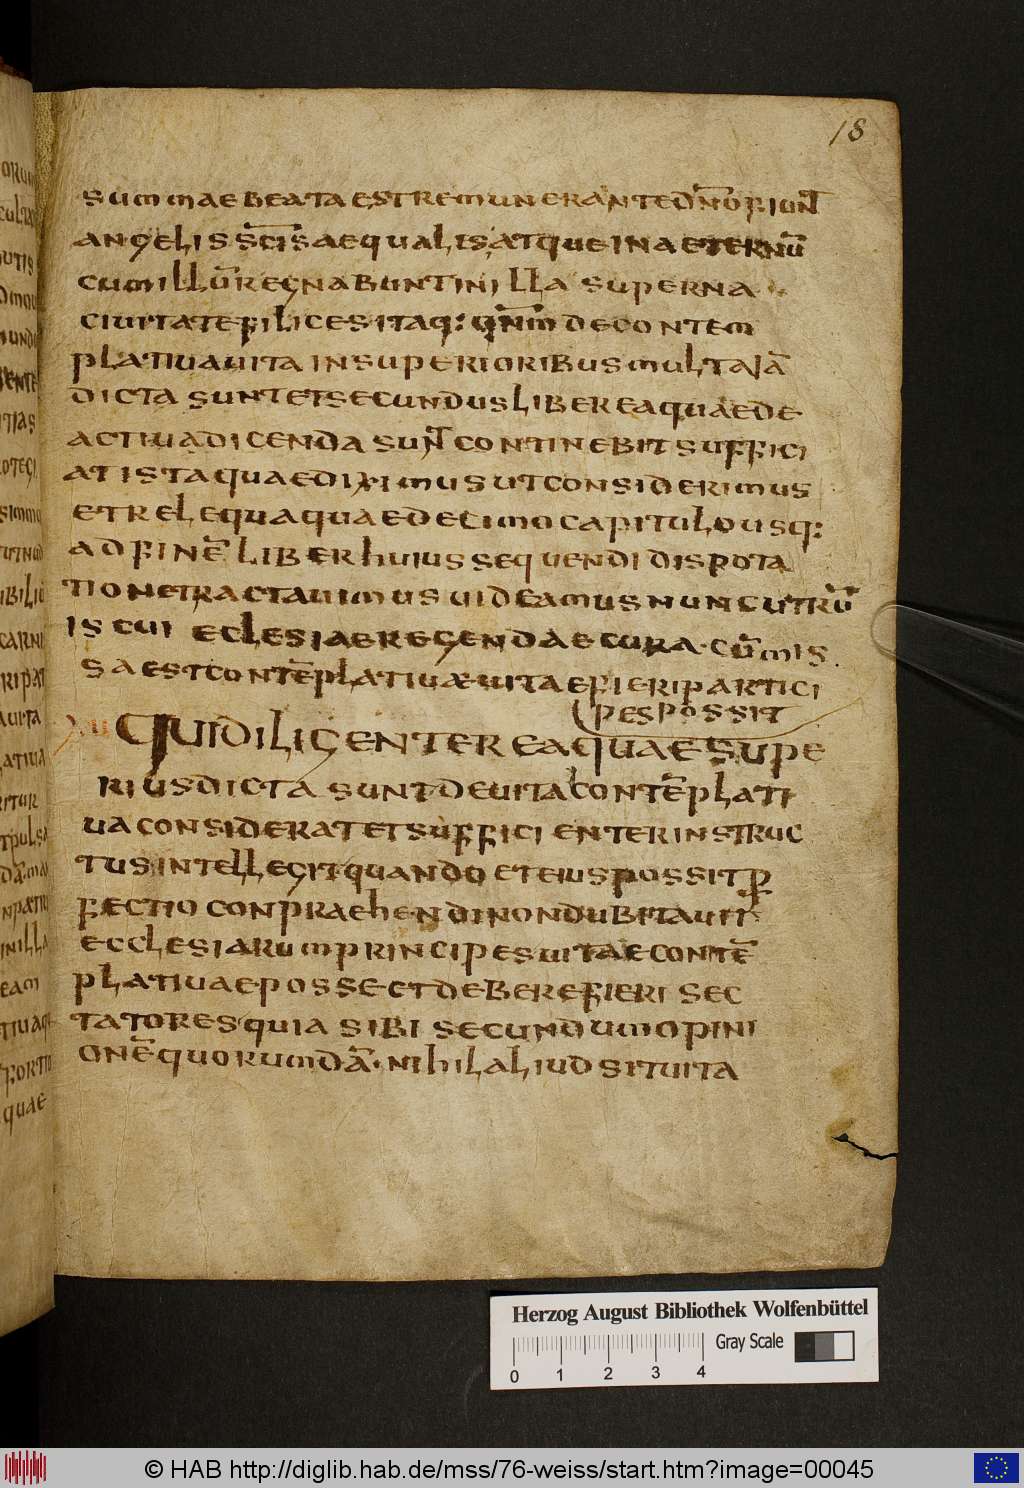 18
summae beataest remunerante dn̄o fiunt̄
angelis sc̄is aequalis, atque in aeternū
cum illū regnabunt in illa superna
ciuitate filices itaq: qn̄m de contem
platiua uita in superioribus multa jā
dicta sunt et secundus liber ea quae de
actiua dicenda sunt̄ continebit suffici
at ista quae diximus ut considerimus
et relequa quae decimo capitulo usq:
ad finē liber huius sequendi dispota
tione tractauimus uideamus nunc utrū
is cui eclesiae regendae cura · cūmis
sa est contēplatiuæ uitae fieri partici
pes possit
xiii Qui diligenter ea quae supe
rius dicta sunt de uita contēplati
ua considerat et sufficienter instruc
tus intellegit quando et eius possit p
fectio conpraehendi non dubitauit
ecclesiarum principes uitae contē
platiuae posse ct debere fieri sec
tatores quia sibi secundum opini
onē quorumdā · nihil aliud sit uita
Herzog August Bibliothek Wolfenbüttel
Gray Scale
0 1 2 3 4
© HAB http://diglib.hab.de/mss/76-weiss/start.htm?image=00045